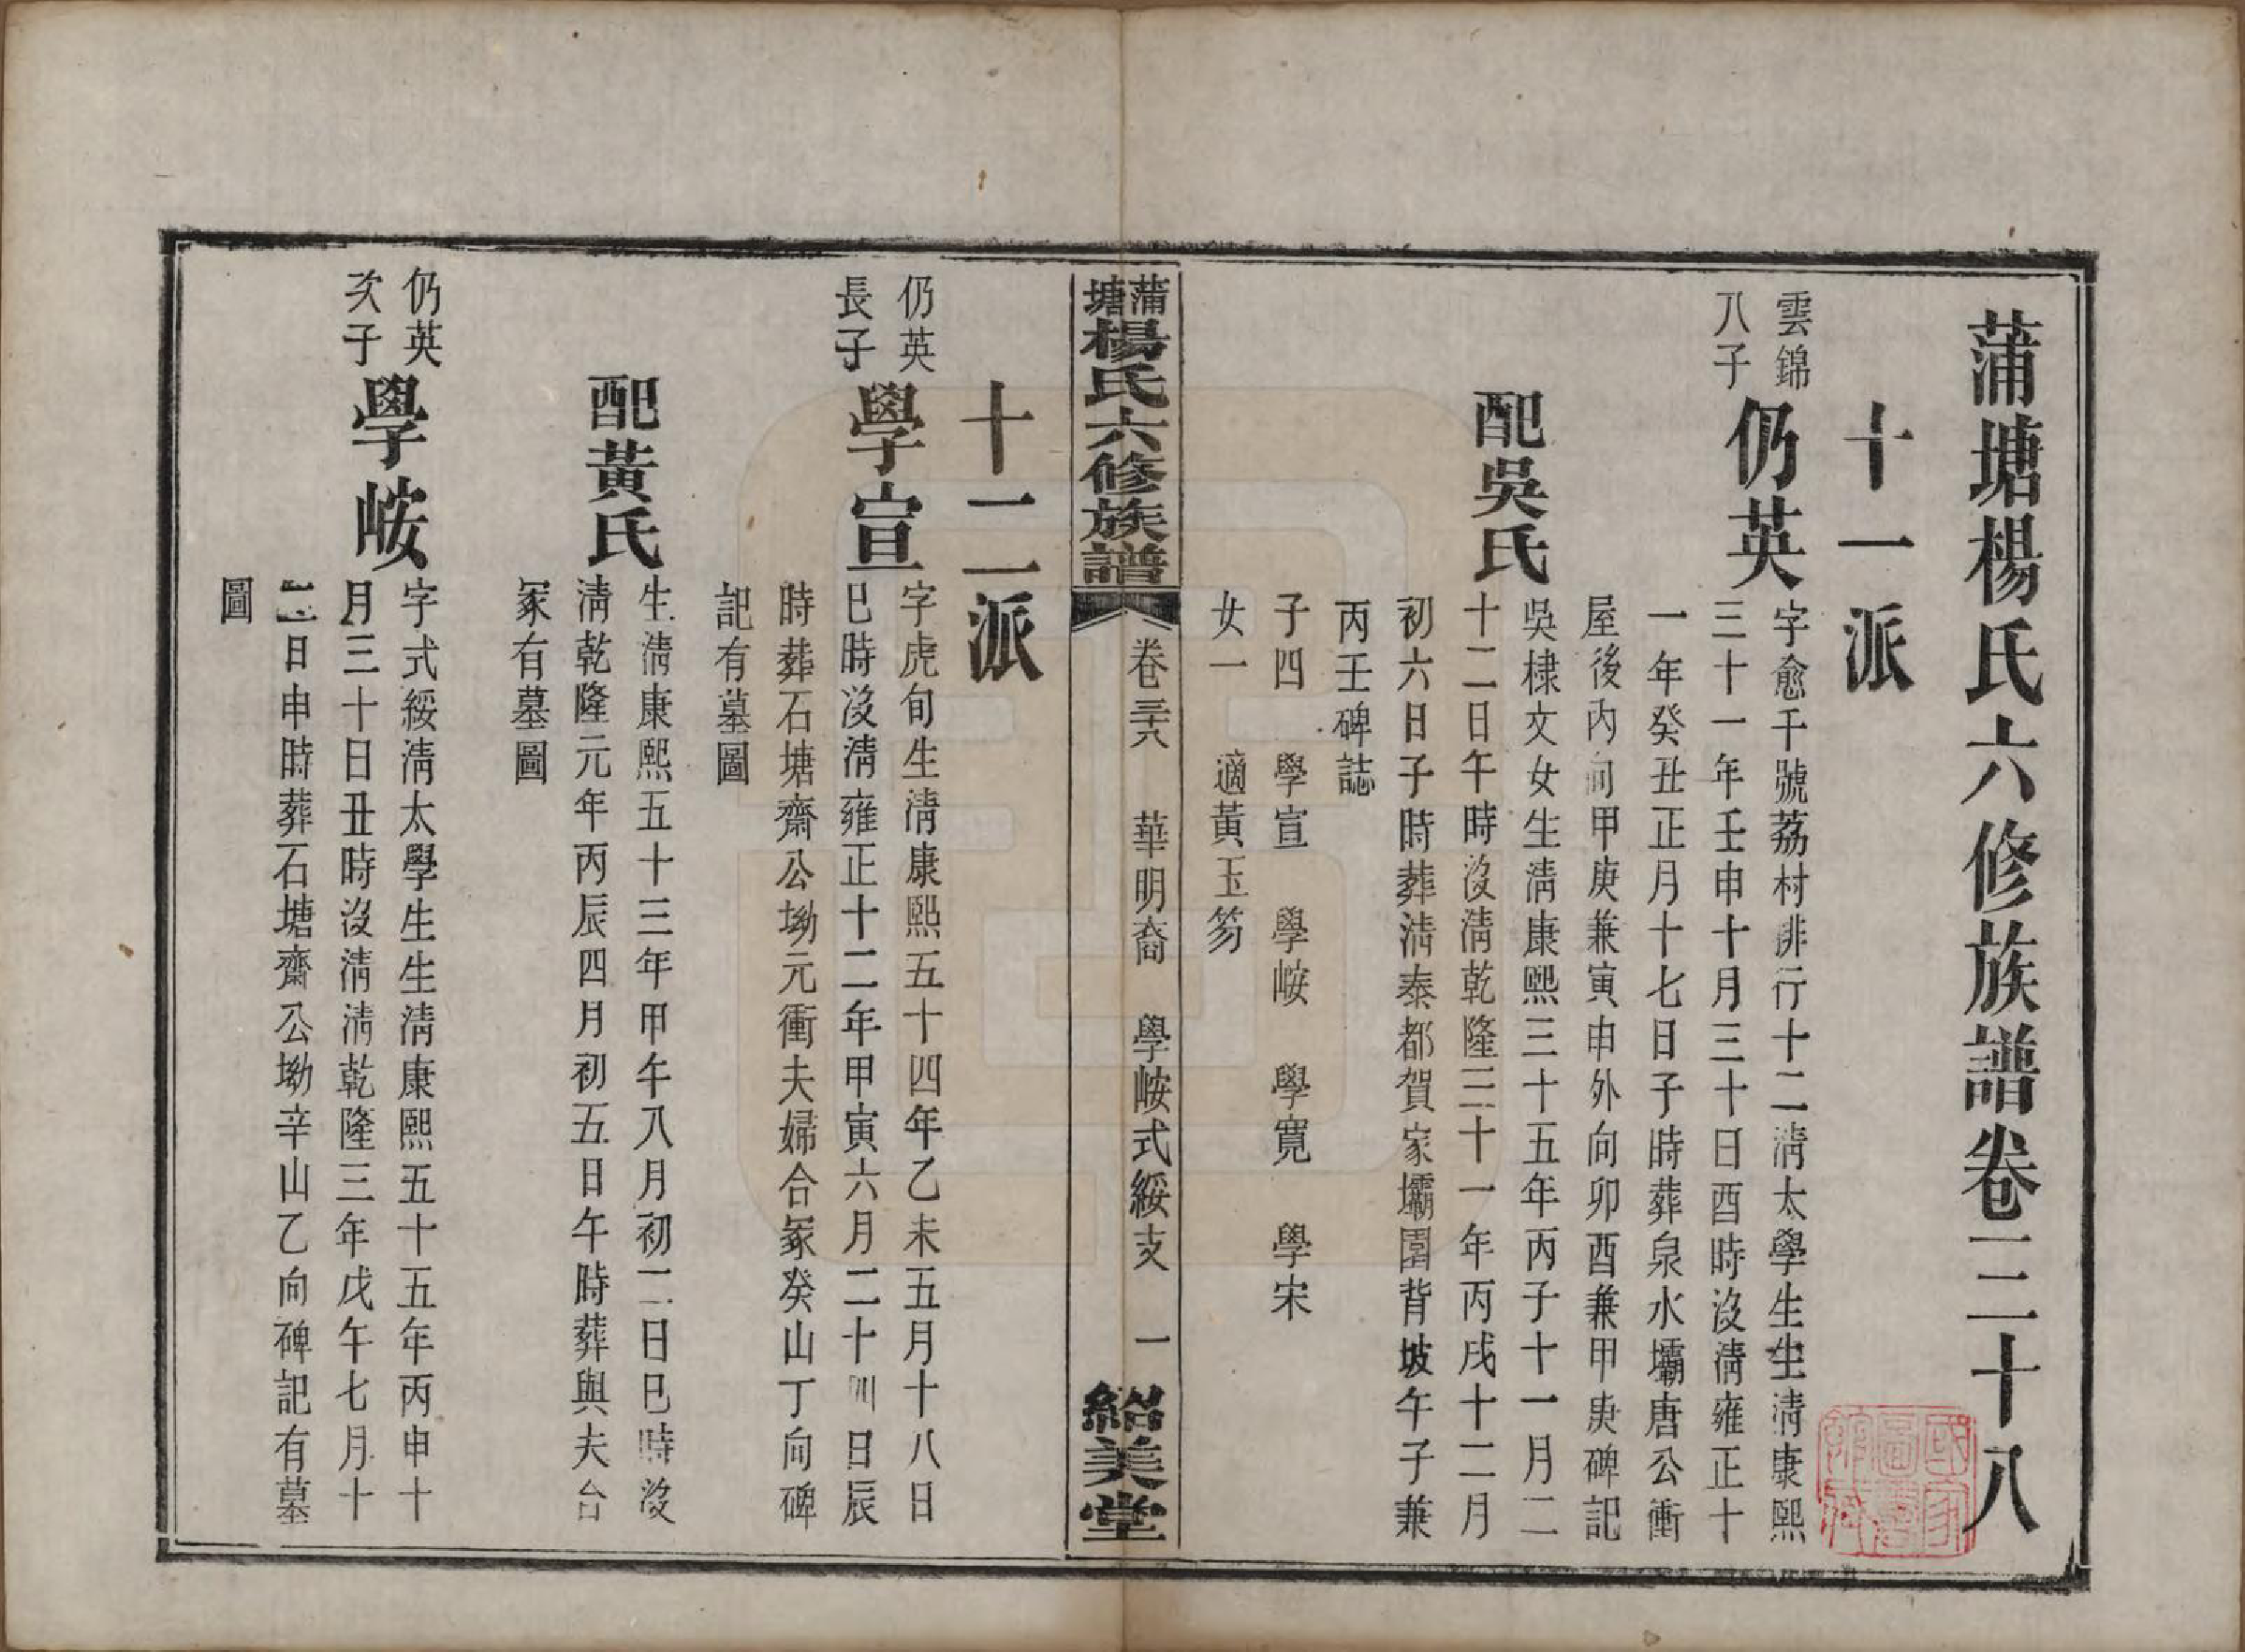 蒲塘楊氏六修族譜卷三十八
十一派
雲錦
八子
仍英
字愈千號荔村排行十二淸太學生生淸康熙
三十一年壬申十月三十日酉時沒淸雍正十
一年癸丑正月十七日子時葬泉水壩唐公衝
屋後內向甲庚兼寅申外向卯酉兼甲庚碑記
配吳氏
吳棣文女生淸康熙三十五年丙子十一月二
十二日午時沒淸乾隆三十一年丙戌十二月
初六日子時葬淸泰都賀家壩園背坡午子兼
丙壬碑誌
子四　學宣　學峖　學寬　學宋
女一　適黃玉笏
蒲塘楊氏六修族譜　卷三十八　華明裔　學峖式綏支　一　紹美堂
十二派
仍英
長子
學宣
字虎旬生淸康熙五十四年乙未五月十八日
巳時沒淸雍正十二年甲寅六月二十四日辰
時葬石塘齋公坳元衝夫婦合冢癸山丁向碑
記有墓圖
配黃氏
生淸康熙五十三年甲午八月初二日巳時沒
淸乾隆元年丙辰四月初五日午時葬與夫合
冢有墓圖
仍英
次子
學峖
字式綏淸太學生生淸康熙五十五年丙申十
月三十日丑時沒淸淸乾隆三年戊午七月十
二日申時葬石塘齋公坳辛山乙向碑記有墓
圖
國家圖書館藏